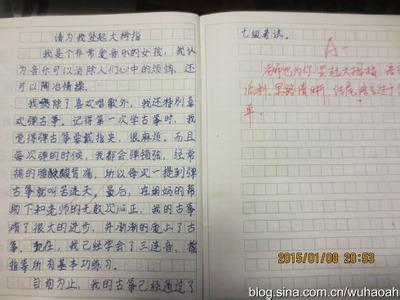 请为我竖起大拇指
我是个非常爱音乐的女孩,我认
为音乐可以消除人们心中的烦恼,还
可以陶冶情操。
我除了喜欢唱歌外,我还特别喜
欢弹古筝。记得第一次学古筝时,我
觉得弹古筝要戴指夹,很麻烦。而且
每次弹的时候,我都会弹很久,经常
搞的腰酸背痛,所以每次一提到弹
古筝就叫苦连天。最后,在妈妈的帮
助下和老师的无数次纠正,我的古筝
有了很大的进步,并渐渐的爱上了古
筝。现在,我已经学会了三连音、摇
指等所有基本功练习。
目前为止,我的古筝已经通过了
七级考试。
A-
老师也为你竖起大拇指
结尾
单。
2015/01/08 20:53
blog.sina.com.cn/wuhaoah